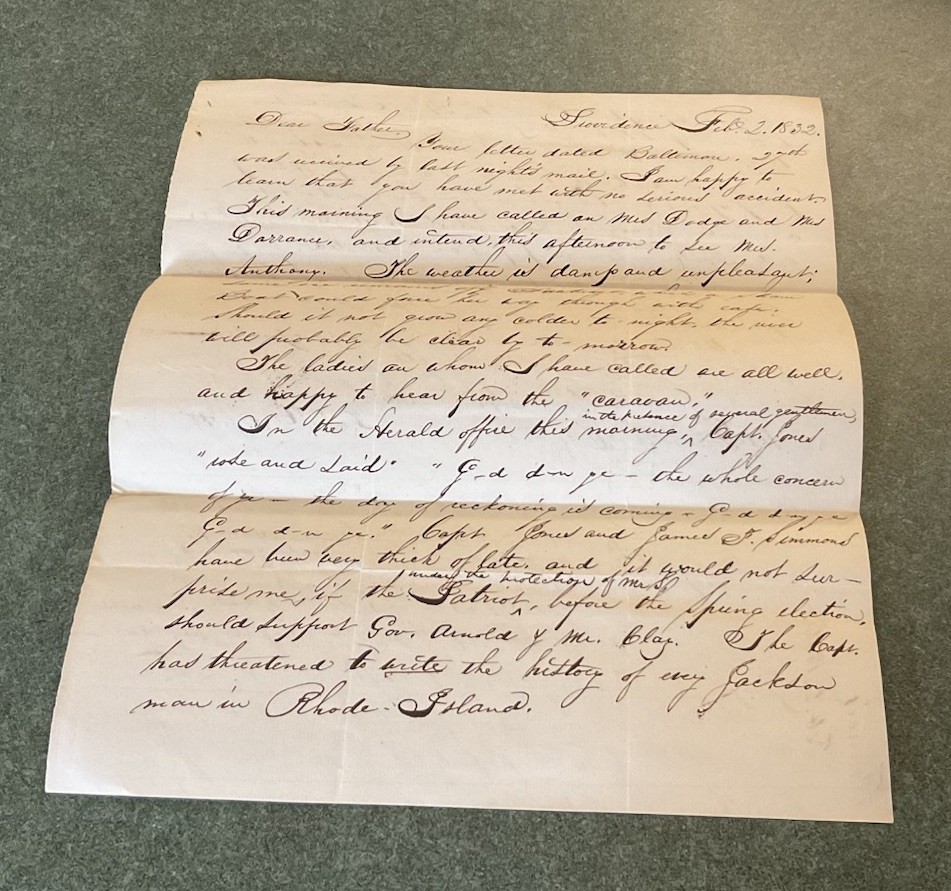 Providence Feb. 2. 1832.
Dear Father,
Your letter dated Baltimore, 29th
was received by last night's mail. I am happy to
learn that you have met with no serious accident.
This morning I have called on Mrs Dodge and Mrs
Dorrance, and intend, this afternoon to see Mrs.
Anthony. The weather is damp and unpleasant;
boat could force her way through with ease.
Should it not grow any colder to-night, the river
will probably be clear by to-morrow.
The ladies on whom I have called are all well,
and happy to hear from the "caravan,"
in the presence of several gentlemen,
In the Herald office this morning, ^ Capt. Jones
"rose and said" "G-d d-n ye - the whole concern
of ye - the day of reckoning is coming - G-d d-n ye
G-d d-n ye." Capt. Jones and James F. Simmons
have been very thick of late, and it would not sur-
under the protection of Mr S
prise me, if the Patriot, ^ before the spring election,
should support Gov. Arnold & Mr. Clay. The Capt.
has threatened to write the history of every Jackson
man in Rhode-Island.